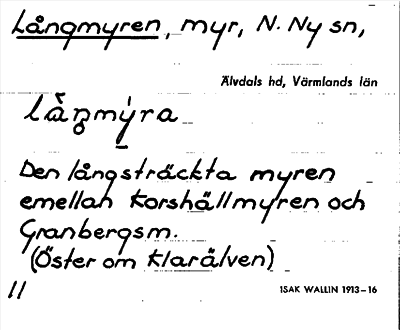 Långmyren, myr, N. Ny sn,
Älvdals hd, Värmlands län
lå̀ŋmýra
Den långsträckta myren
emellan Korshällmyren och
Granbergsm.
(Öster om Klarälven)
11
ISAK WALLIN 1913–16